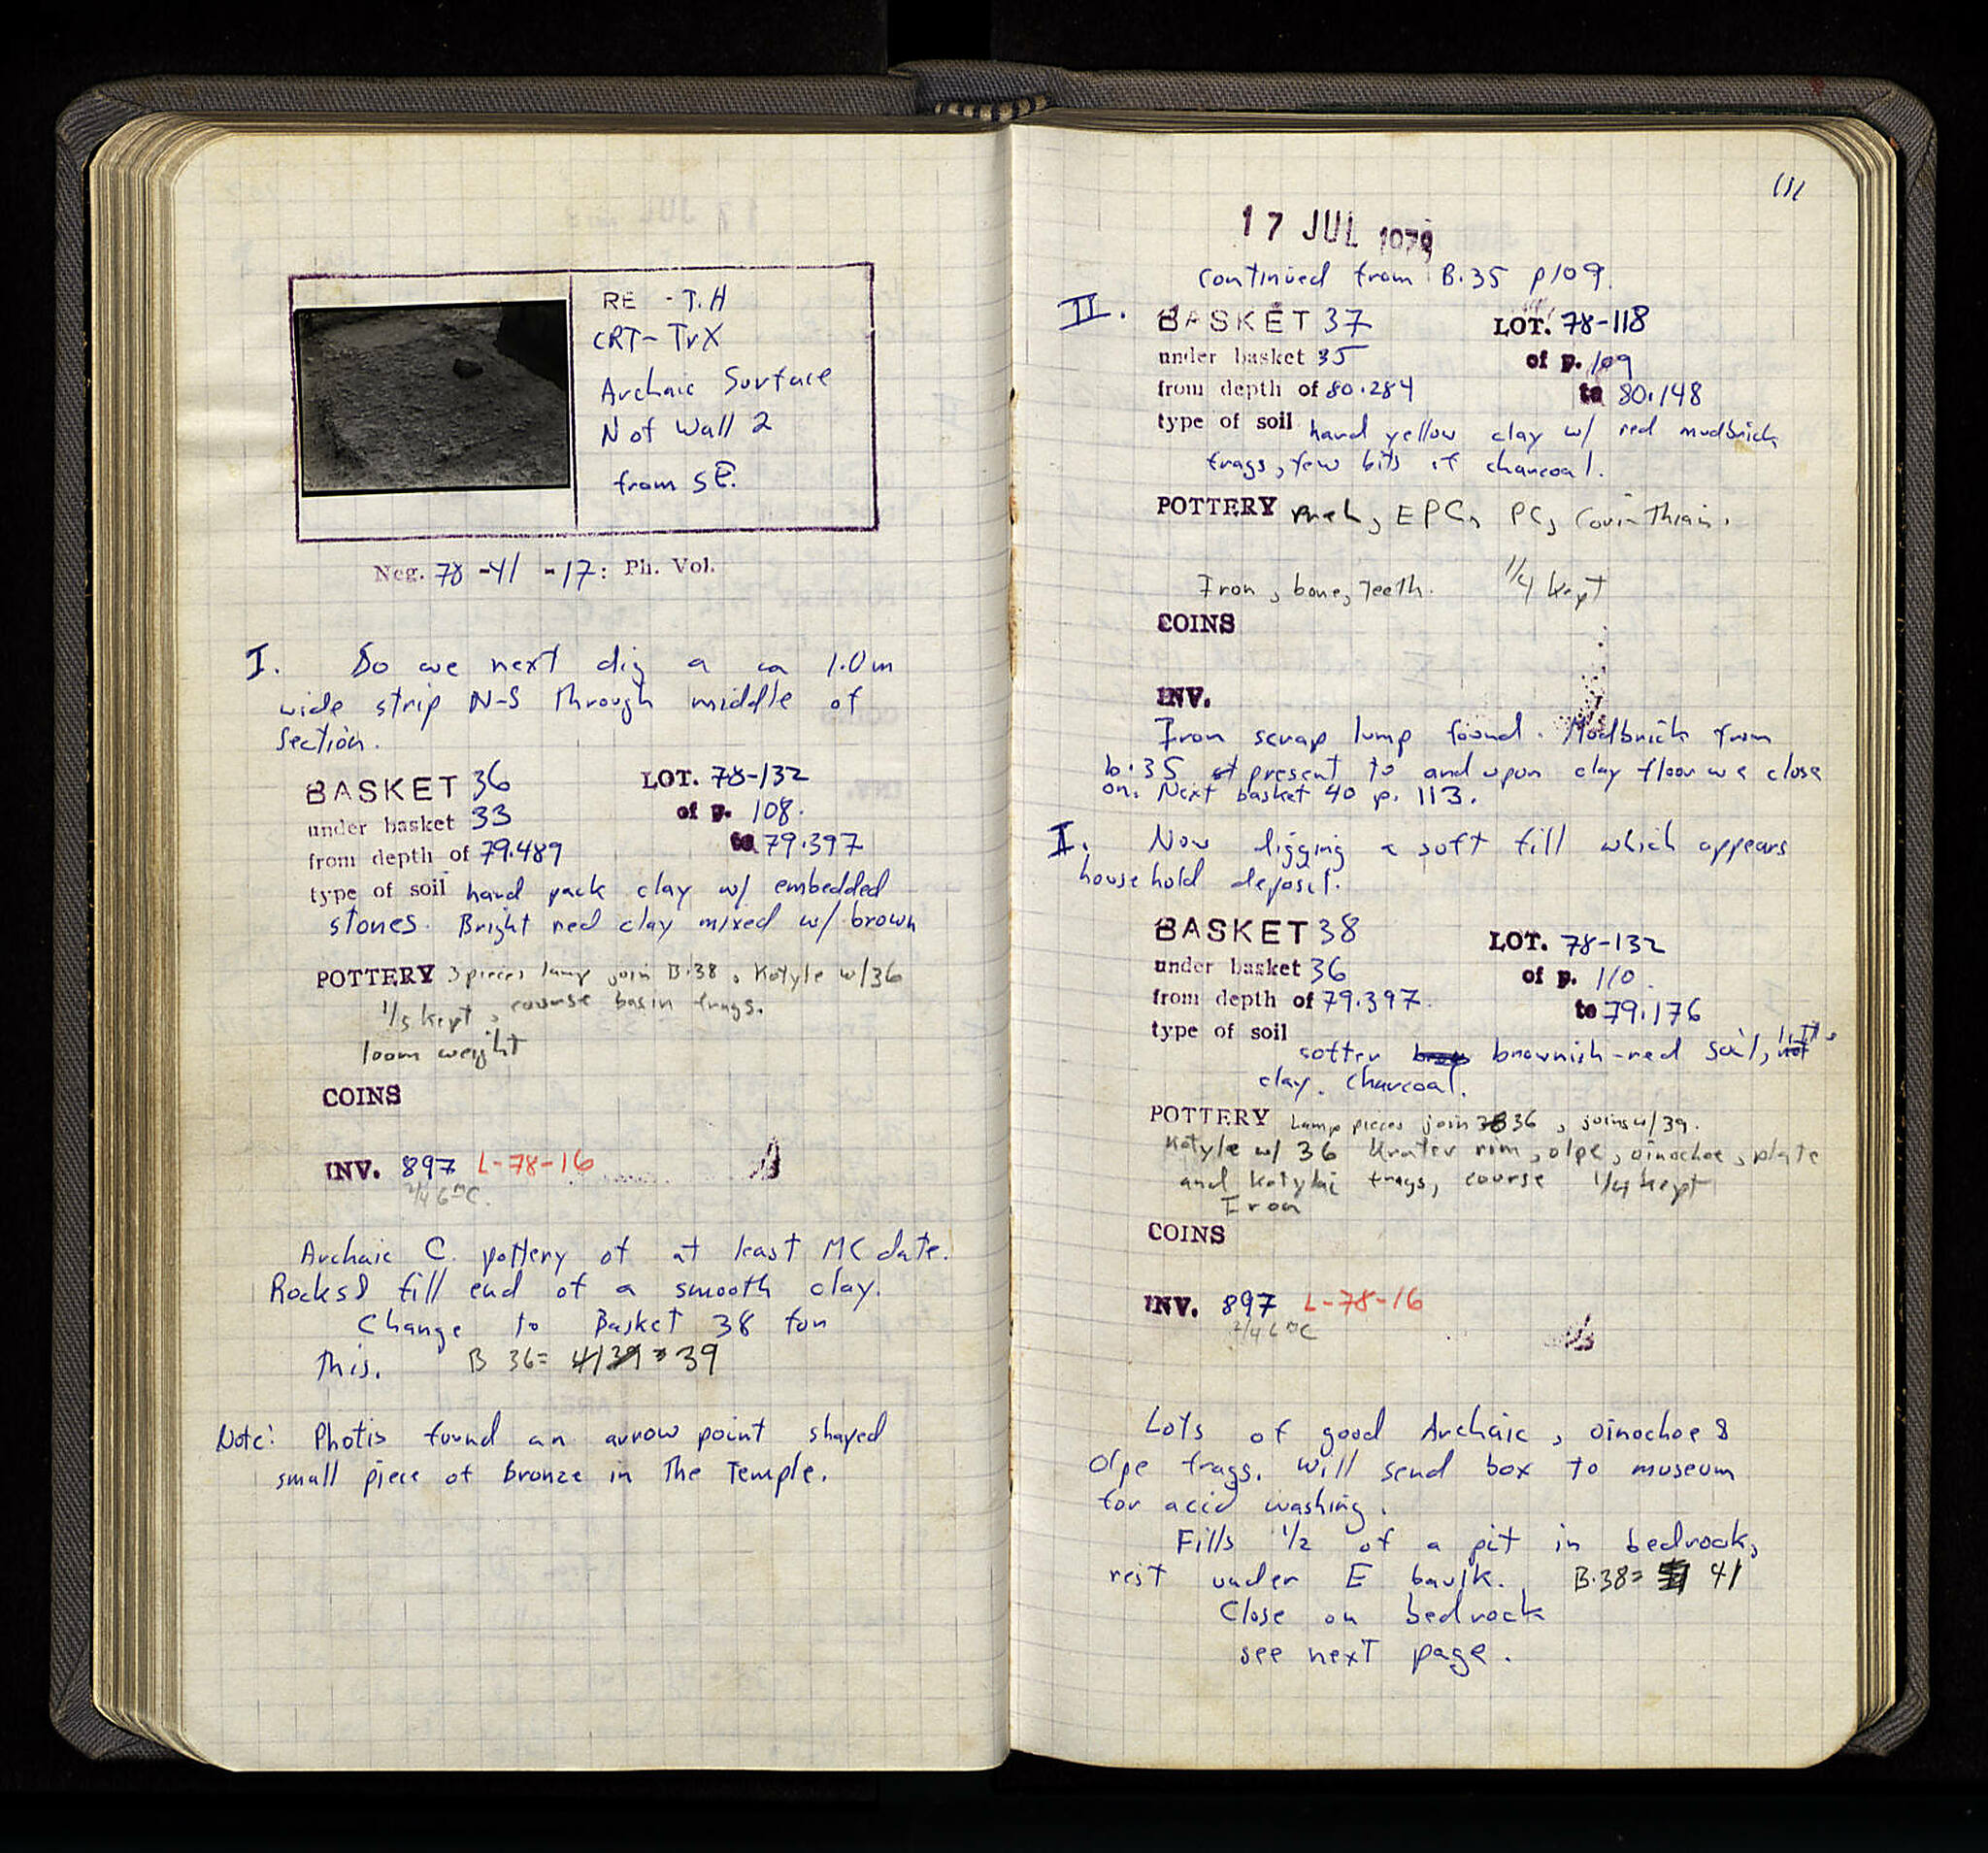 RE - T.H
CRT- TrX
Archaic Surface
N of Wall 2
from SE.
Neg. 78 -41 -17: Ph. Vol.
I. So we next dig a ca 1.0m
wide strip N-S through middle of
Section.
BASKET 36 LOT. 78-132
under basket 33 of p. 108.
from depth of 79.489 to 79.397
type of soil hard pack clay w/ embedded
stones. Bright red clay mixed w/ brown
POTTERY 3 pieces lamp join B.38, Kotyle w/36
1/5 kept, course basin frags.
loom weight
COINS
INV. 897 L-78-16
2/4 6th C.
Archaic C. pottery of at least MC date.
Rocks & fill end of a smooth clay.
Change to Basket 38 for
this. B 36= 39
Note: Photis found an arrow point shaped
small piece of bronze in The Temple.
111
17 JUL 1978
continued from B.35 p109.
II. BASKET 37 LOT. 78-118
under basket 35 of p. 109
from depth of 80.284 to 80.148
type of soil hard yellow clay w/ red mudbrick
frags, few bits of charcoal.
POTTERY EPC, PC, Corinthian.
Iron, bone, Teeth. 1/4 kept
COINS
INV.
Iron scrap lump found. Mudbrick from
b.35 present to and upon clay floor we close
on. Next basket 40 p. 113.
I. Now digging a soft fill which appears
household deposit.
BASKET 38 LOT. 78-132
under basket 36 of p. 110.
from depth of 79.397. to 79.176
type of soil
softer brownish-red soil, little
clay. Charcoal.
POTTERY Lamp pieces join 36, joins w/39.
Kotyle w/ 36 Krater rim, olpe, oinochoe, plate
and Kotylai frags, course 1/4 kept
Iron
COINS
INV. 897 L-78-16
2/4 6th C
Lots of good Archaic, oinochoe &
Olpe frags. Will send box to museum
for acid washing.
Fills 1/2 of a pit in bedrock,
rest under E baulk. B.38= 41
Close on bedrock
see next page.